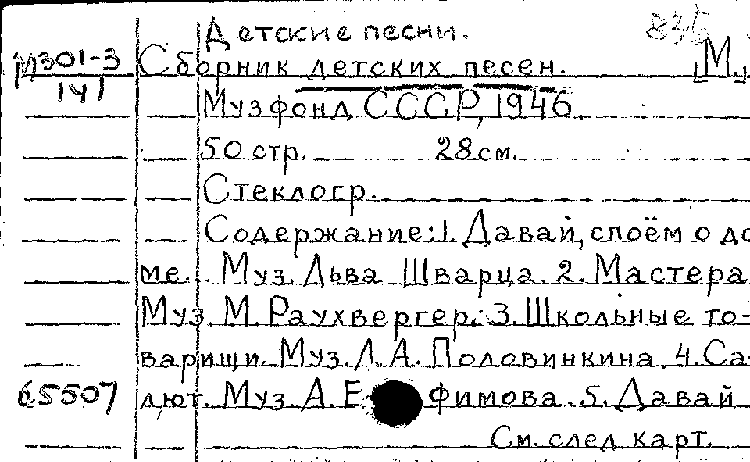 Детские песни. 835
М301-3 Сборник детских песен. [М.,
141 Музфонд СССР, 1946.
50 стр. 28 см.
Стеклогр.
Содержание: 1. Давай, споём о до
ме. Муз. Льва Шварца. 2. Мастера
Муз. М. Раухвергер. 3. Школьные то-
варищи. Муз. Л. А. Половинкина. 4. Са-
65507 лют. Муз. А. Е фимова. 5. Давай
См. след карт.